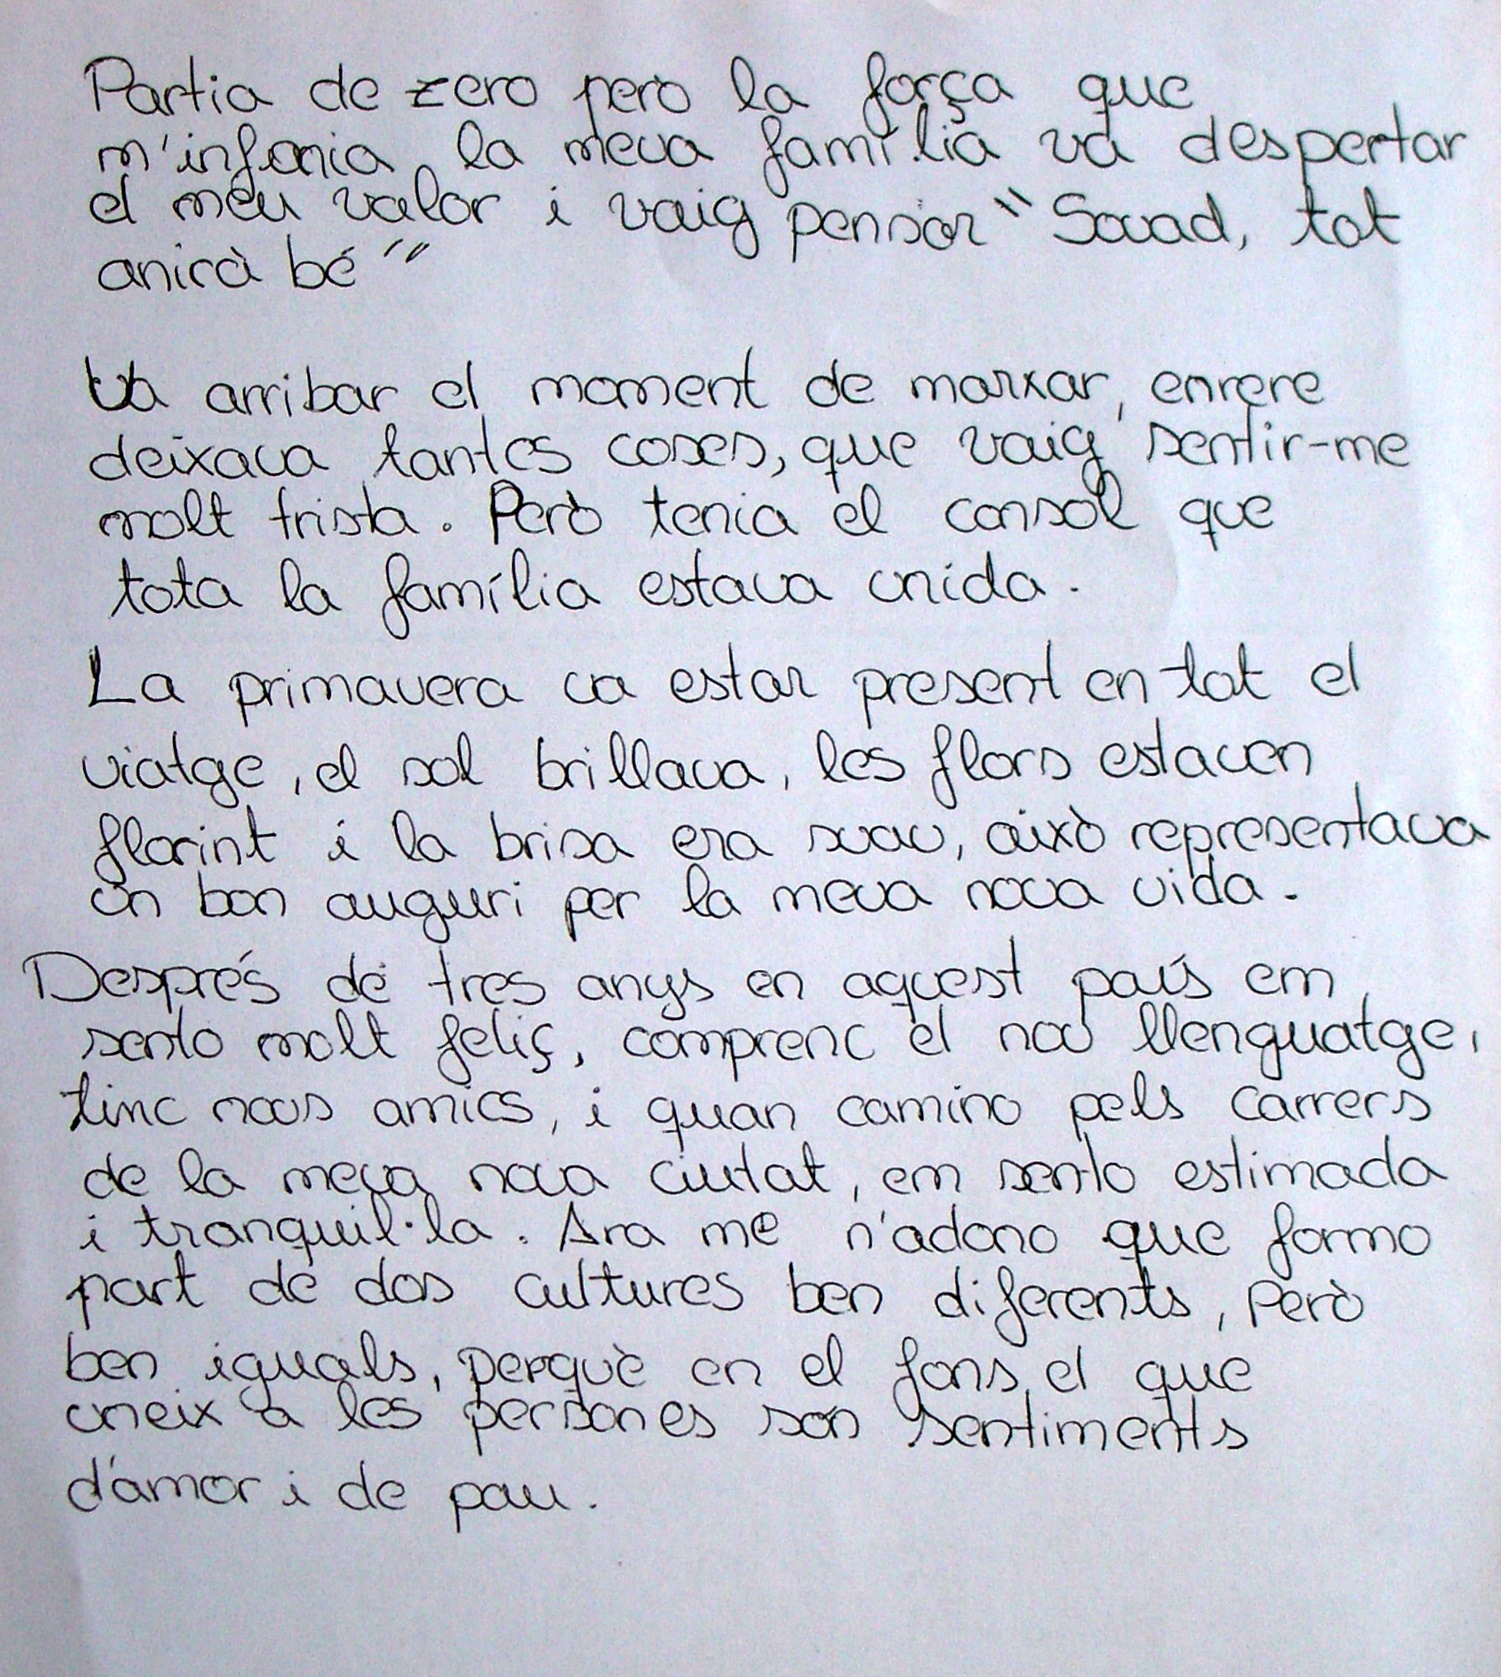 Partia de zero però la força que
m'infonia la meva família va despertar
el meu valor i vaig pensar "Souad, tot
anirà bé"
Va arribar el moment de marxar, enrere
deixava tantes coses, que vaig sentir-me
molt trista. Però tenia el consol que
tota la família estava unida.
La primavera va estar present en tot el
viatge, el sol brillava, les flors estaven
florint i la brisa era suau, això representava
un bon auguri per la meva nova vida.
Després de tres anys en aquest país em
sento molt feliç, comprenc el nou llenguatge,
tinc nous amics, i quan camino pels carrers
de la meva nova ciutat, em sento estimada
i tranquil·la. Ara me n'adono que formo
part de dos cultures ben diferents, Però
ben iguals, perquè en el fons, el que
uneix a les persones són sentiments
d'amor i de pau.